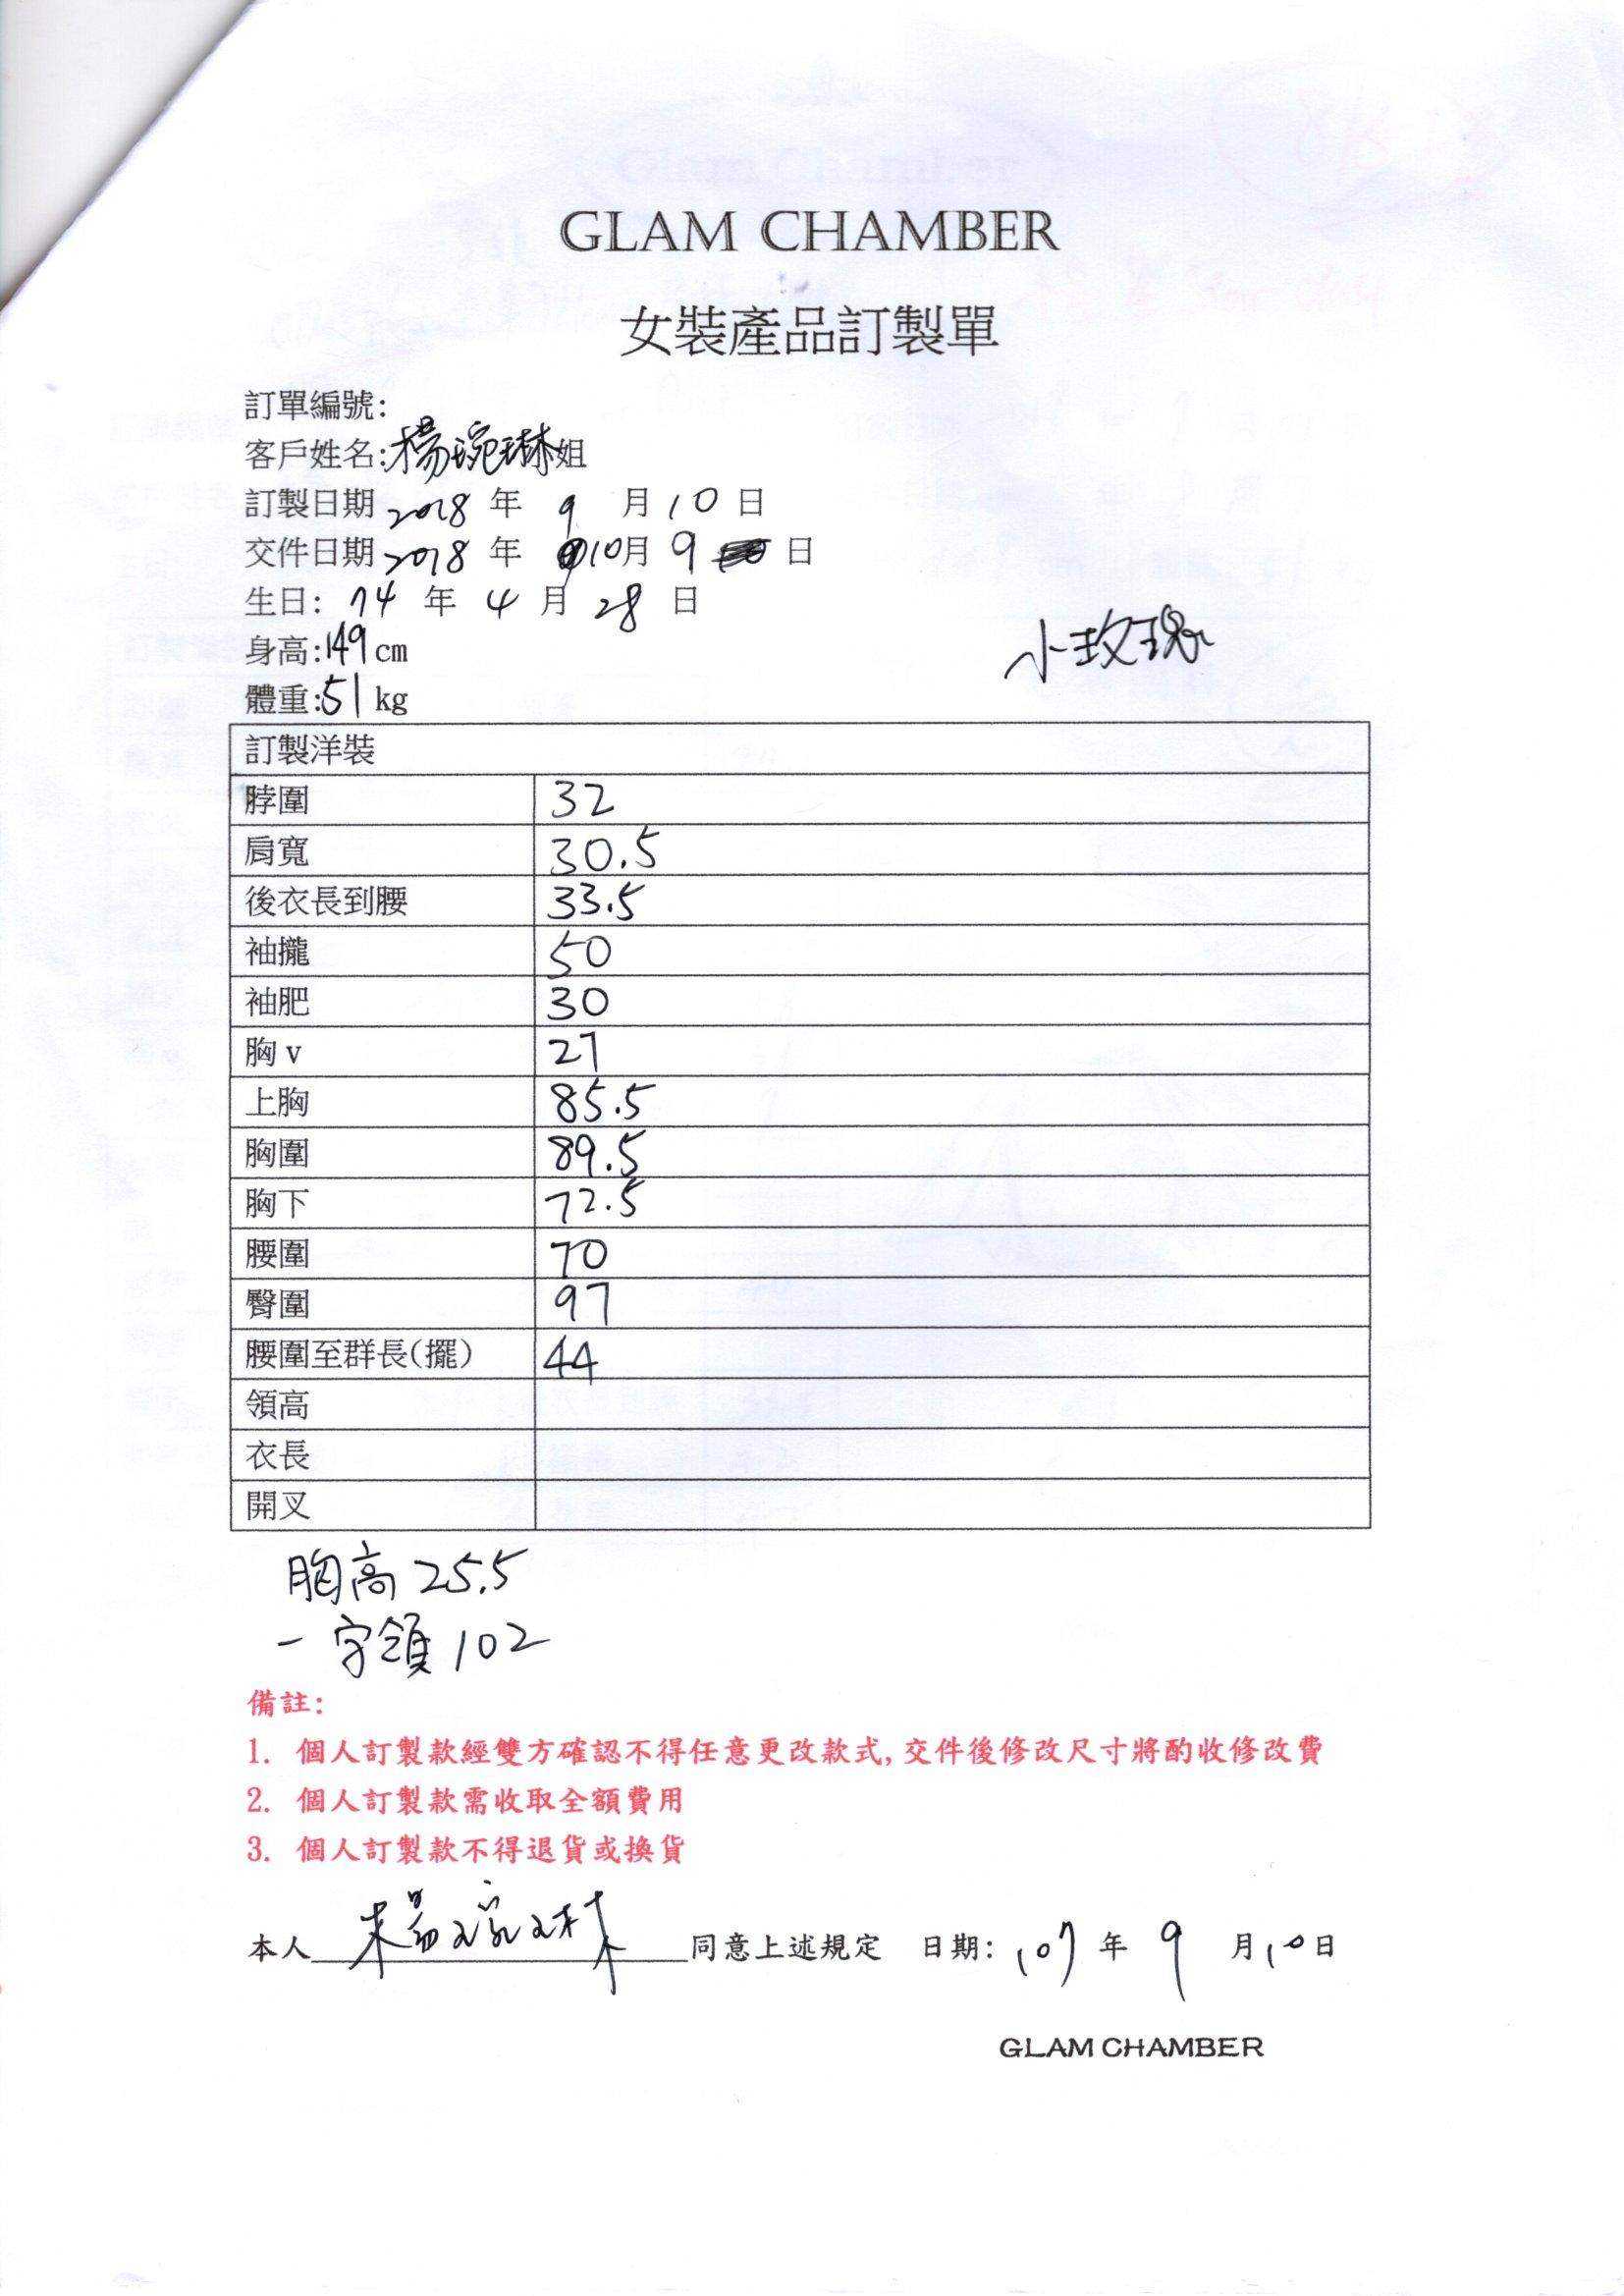 GLAM CHAMBER
女裝產品訂製單
訂單編號:
客戶姓名:楊琬琳姐
訂製日期 2018 年 9 月 10 日
交件日期 2018 年 10月 9 日
生日: 74 年 4 月 28 日
身高:149cm
小玫瑰
體重:51 kg
訂製洋裝
脖圍 32
肩寬 30.5
後衣長到腰 33.5
袖攏 50
袖肥 30
胸 v 27
上胸 85.5
胸圍 89.5
胸下 72.5
腰圍 70
臀圍 97
腰圍至群長(擺) 44
領高
衣長
開叉
胸高 25.5
一字領 102
備註:
1. 個人訂製款經雙方確認不得任意更改款式,交件後修改尺寸將酌收修改費
2. 個人訂製款需收取全額費用
3. 個人訂製款不得退貨或換貨
本人 楊琬琳 同意上述規定 日期: 107 年 9 月 10 日
GLAM CHAMBER